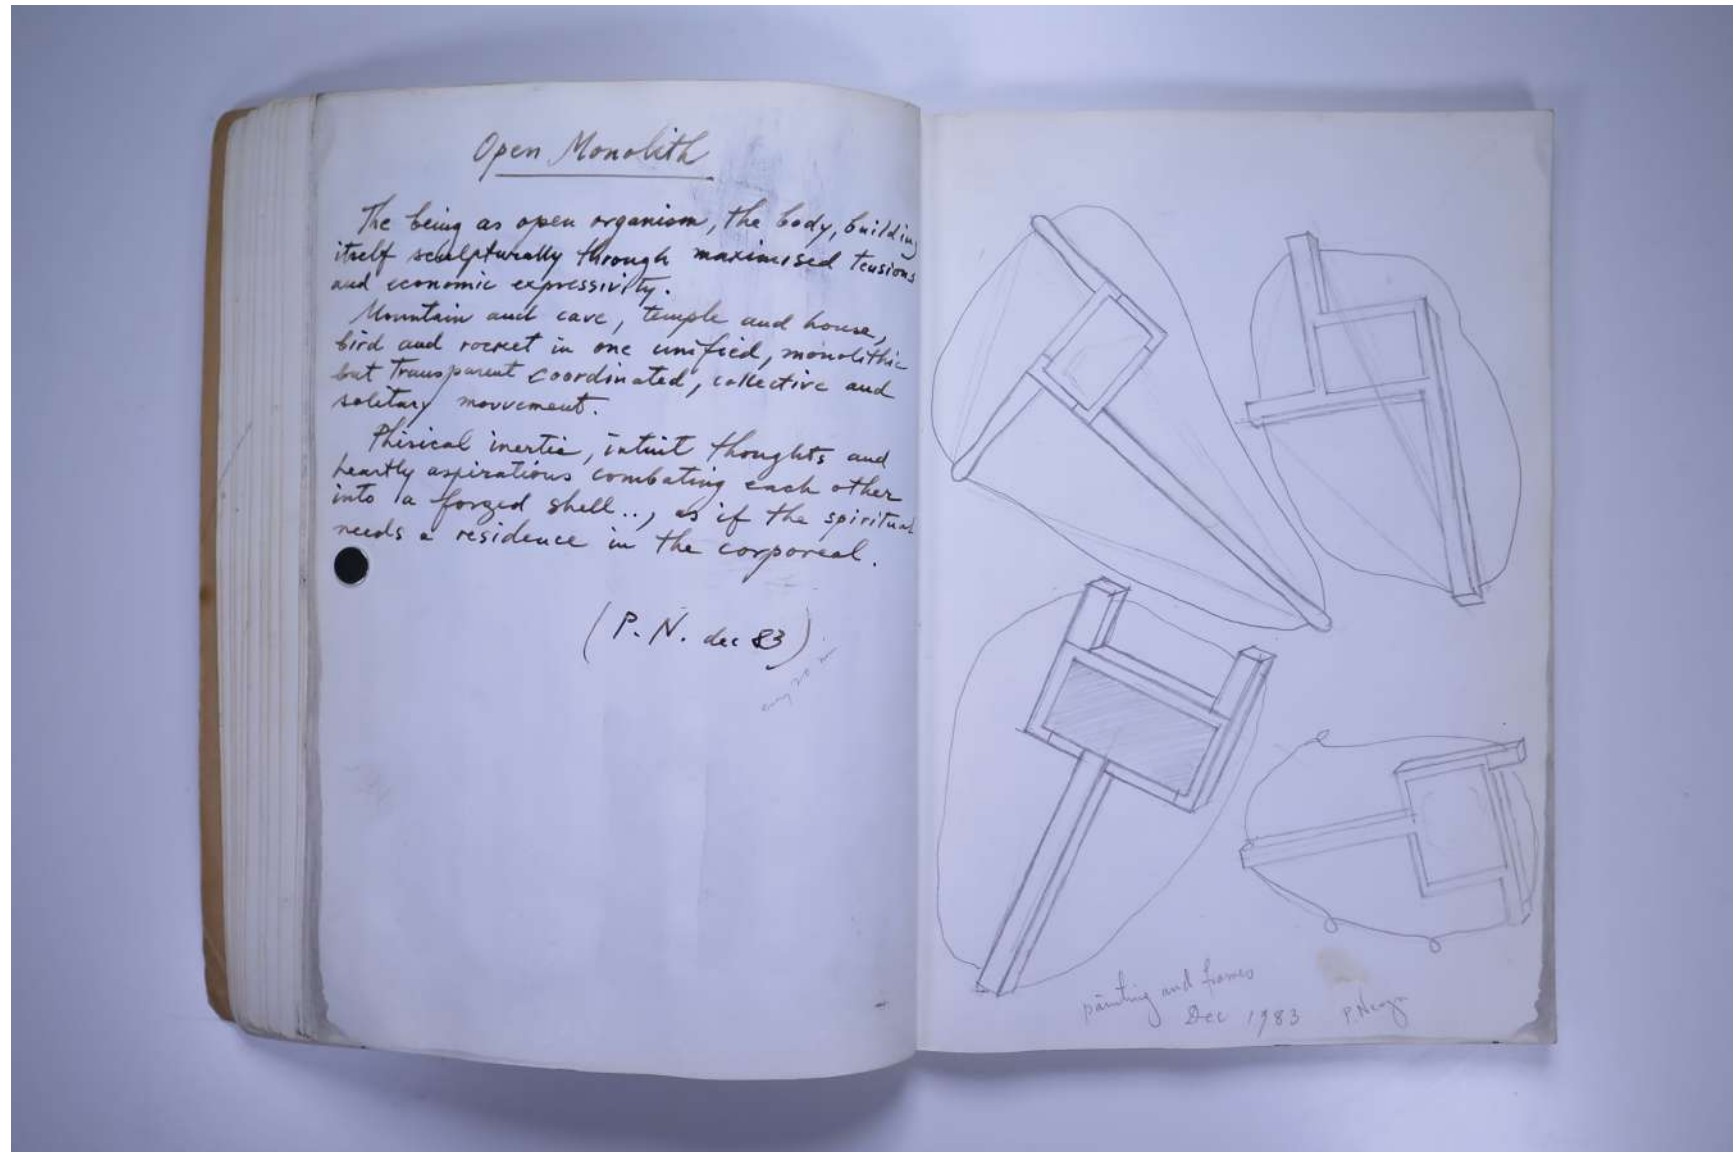 Open Monolith
The being as open organism, the body, building
itself sculpturally through maximised tensions
and economic expressivity.
Mountain and cave, temple and house,
bird and rocket in one unified, monolithic
but transparent coordinated, collective and
solitary movvement.
Phisical inertia, intuit thoughts and
heartly aspirations combating each other
into a forged shell.., as if the spiritual
needs a residence in the corporeal.
(P. N. dec 83)
painting and frames
Dec 1983 P. Neagu